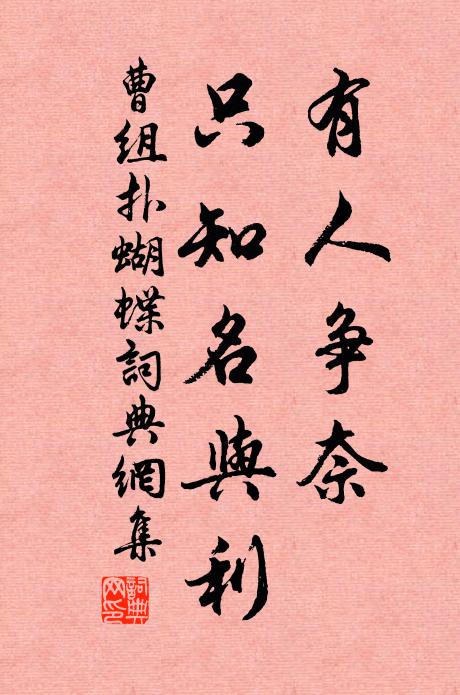 有人争奈
只知名與利
曹組扑蝴蝶詞典網集
詞典
网印